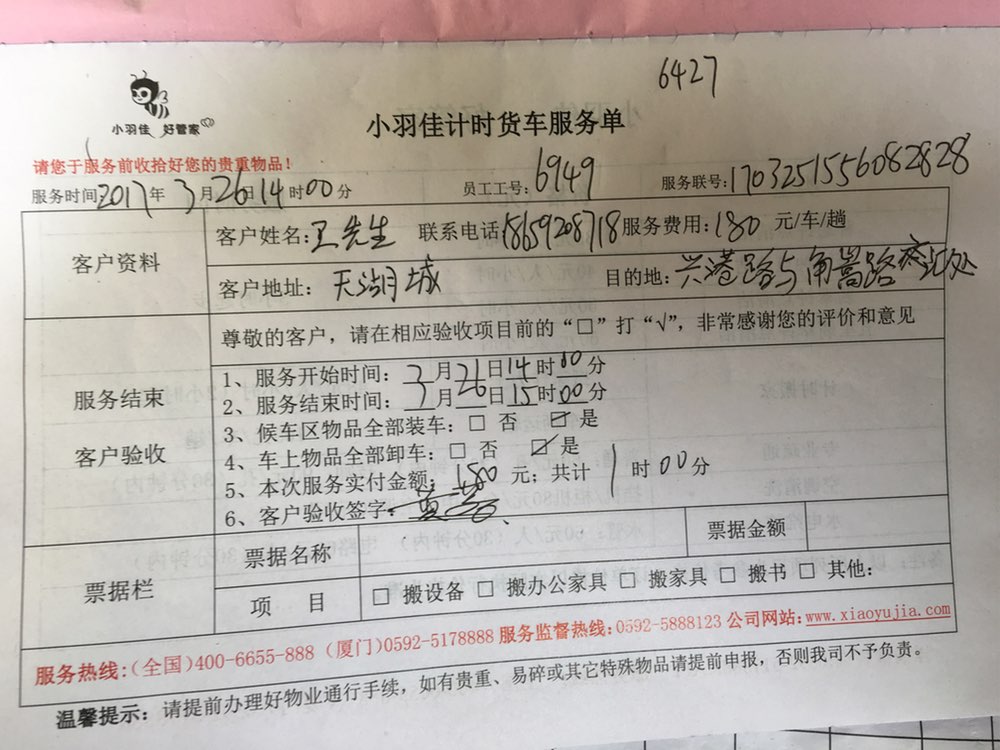 6427
小羽佳 好管家
小羽佳计时货车服务单
请您于服务前收拾好您的贵重物品！
服务时间2017年3月26日14时00分 员工工号：6949 服务联号：1703251556082828
客户资料
客户姓名：王先生 联系电话18659208718服务费用：180 元/车/趟
客户地址：天湖城 目的地：兴港路与角嵩路交汇处
服务结束
客户验收
尊敬的客户，请在相应验收项目前的“□”打“√”，非常感谢您的评价和意见
1、服务开始时间：3月26日14时00分
2、服务结束时间：3月26日15时00分
3、候车区物品全部装车：□ 否 ☑ 是
4、车上物品全部卸车：□ 否 ☑ 是
5、本次服务实付金额：180 元；共计 1 时00分
6、客户验收签字：
票据栏
票据名称 票据金额
项 目 □ 搬设备 □ 搬办公家具 □ 搬家具 □ 搬书 □ 其他：
服务热线：(全国)400-6655-888 (厦门)0592-5178888 服务监督热线：0592-5888123 公司网站：www.xiaoyujia.com
温馨提示：请提前办理好物业通行手续，如有贵重、易碎或其它特殊物品请提前申报，否则我司不予负责。